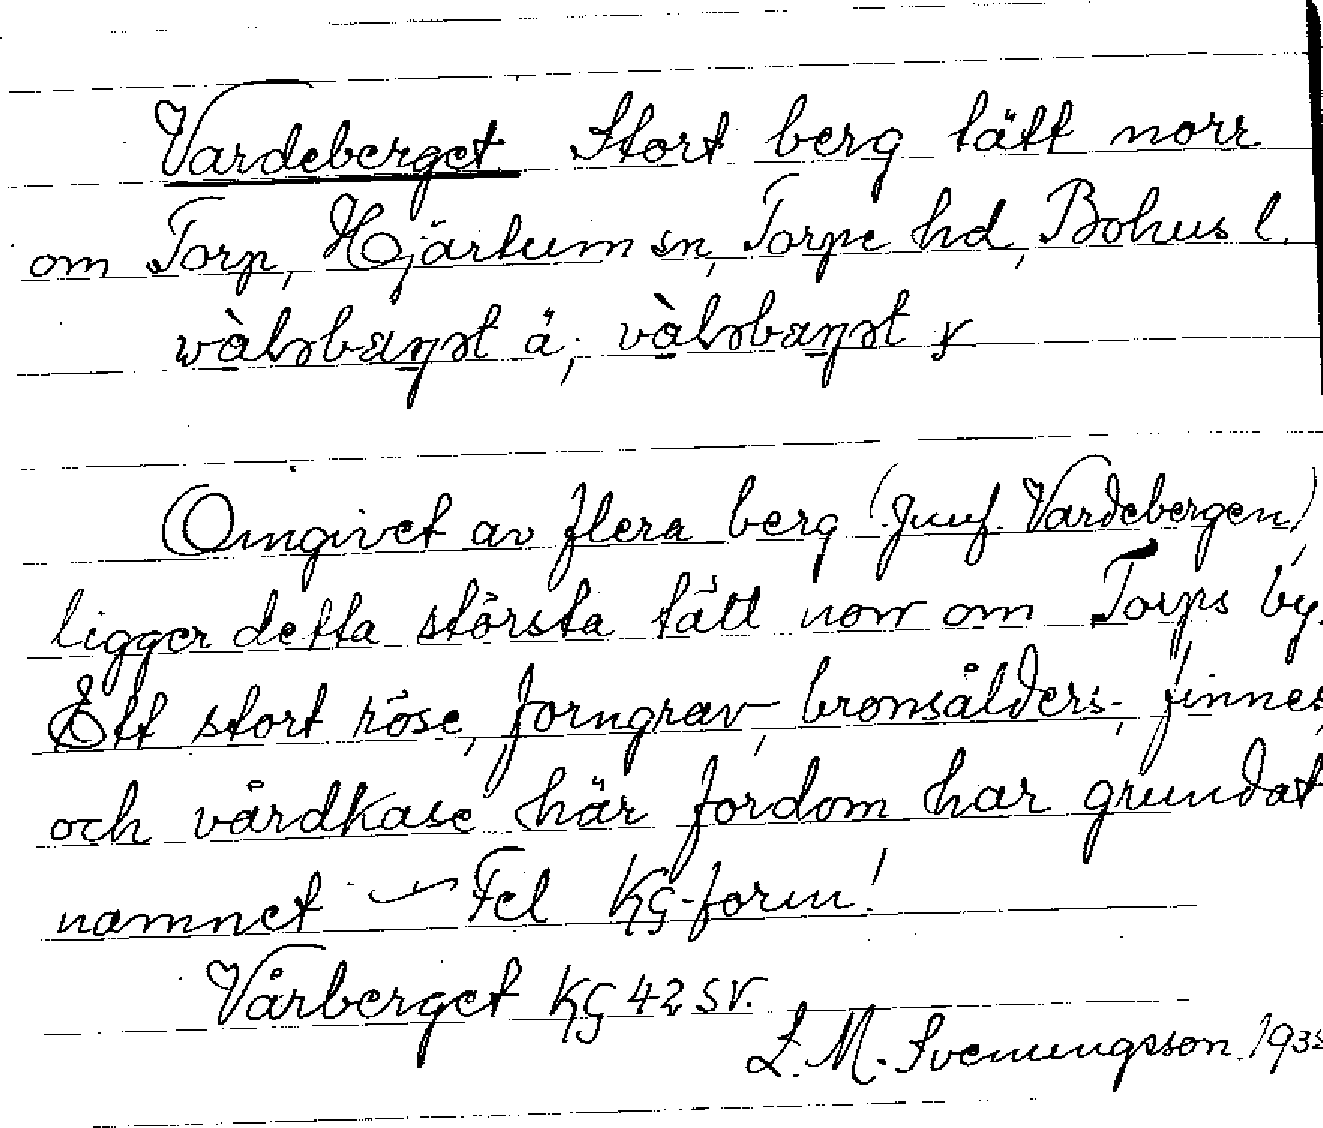 Vardeberget Stort berg tätt norr
om Torp, Hjärtum sn, Torpe hd, Bohus l.
Omgivet av flera berg (jmf. Vardebergen)
ligger detta största tätt norr om Torps by.
Ett stort röse, forngrav, bronsålders-, finnes,
och vårdkase här fordom har grundat
namnet — Fel KG-form!
Vårberget KG 42 SV.
L. M. Svenungsson 193